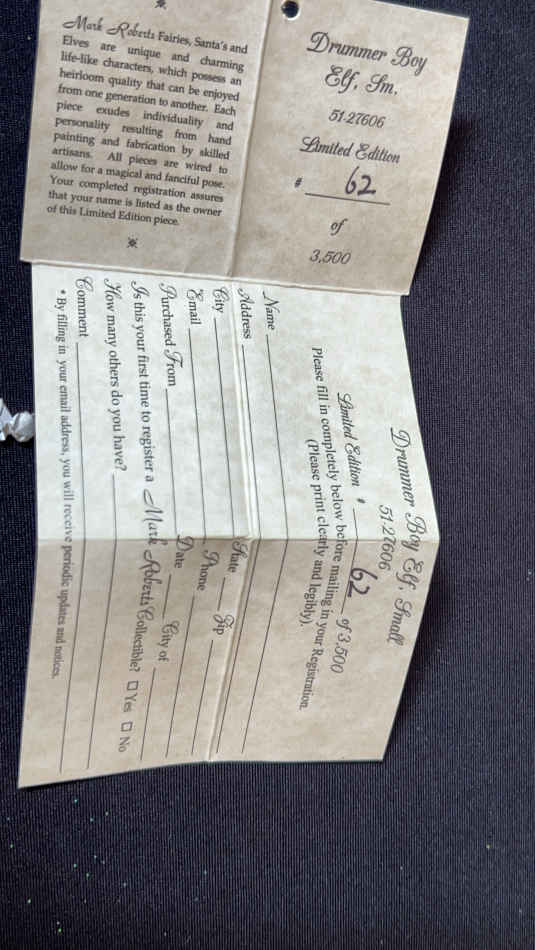 Mark Roberts Fairies, Santa's and
Elves are unique and charming
life-like characters, which possess an
heirloom quality that can be enjoyed
from one generation to another. Each
piece exudes individuality and
personality resulting from hand
painting and fabrication by skilled
artisans. All pieces are wired to
allow for a magical and fanciful pose.
Your completed registration assures
that your name is listed as the owner
of this Limited Edition piece.
Drummer Boy
Elf, Sm.
51-27606
Limited Edition
# 62
of
3,500
Drummer Boy Elf, Small
51-27606
Limited Edition # 62 of 3,500
Please fill in completely below before mailing in your Registration.
(Please print clearly and legibly).
Name
Address
City State Zip
Email Phone
Purchased From Date City of
Is this your first time to register a Mark Roberts Collectible? □ Yes □ No
How many others do you have?
Comment
* By filling in your email address, you will receive periodic updates and notices.